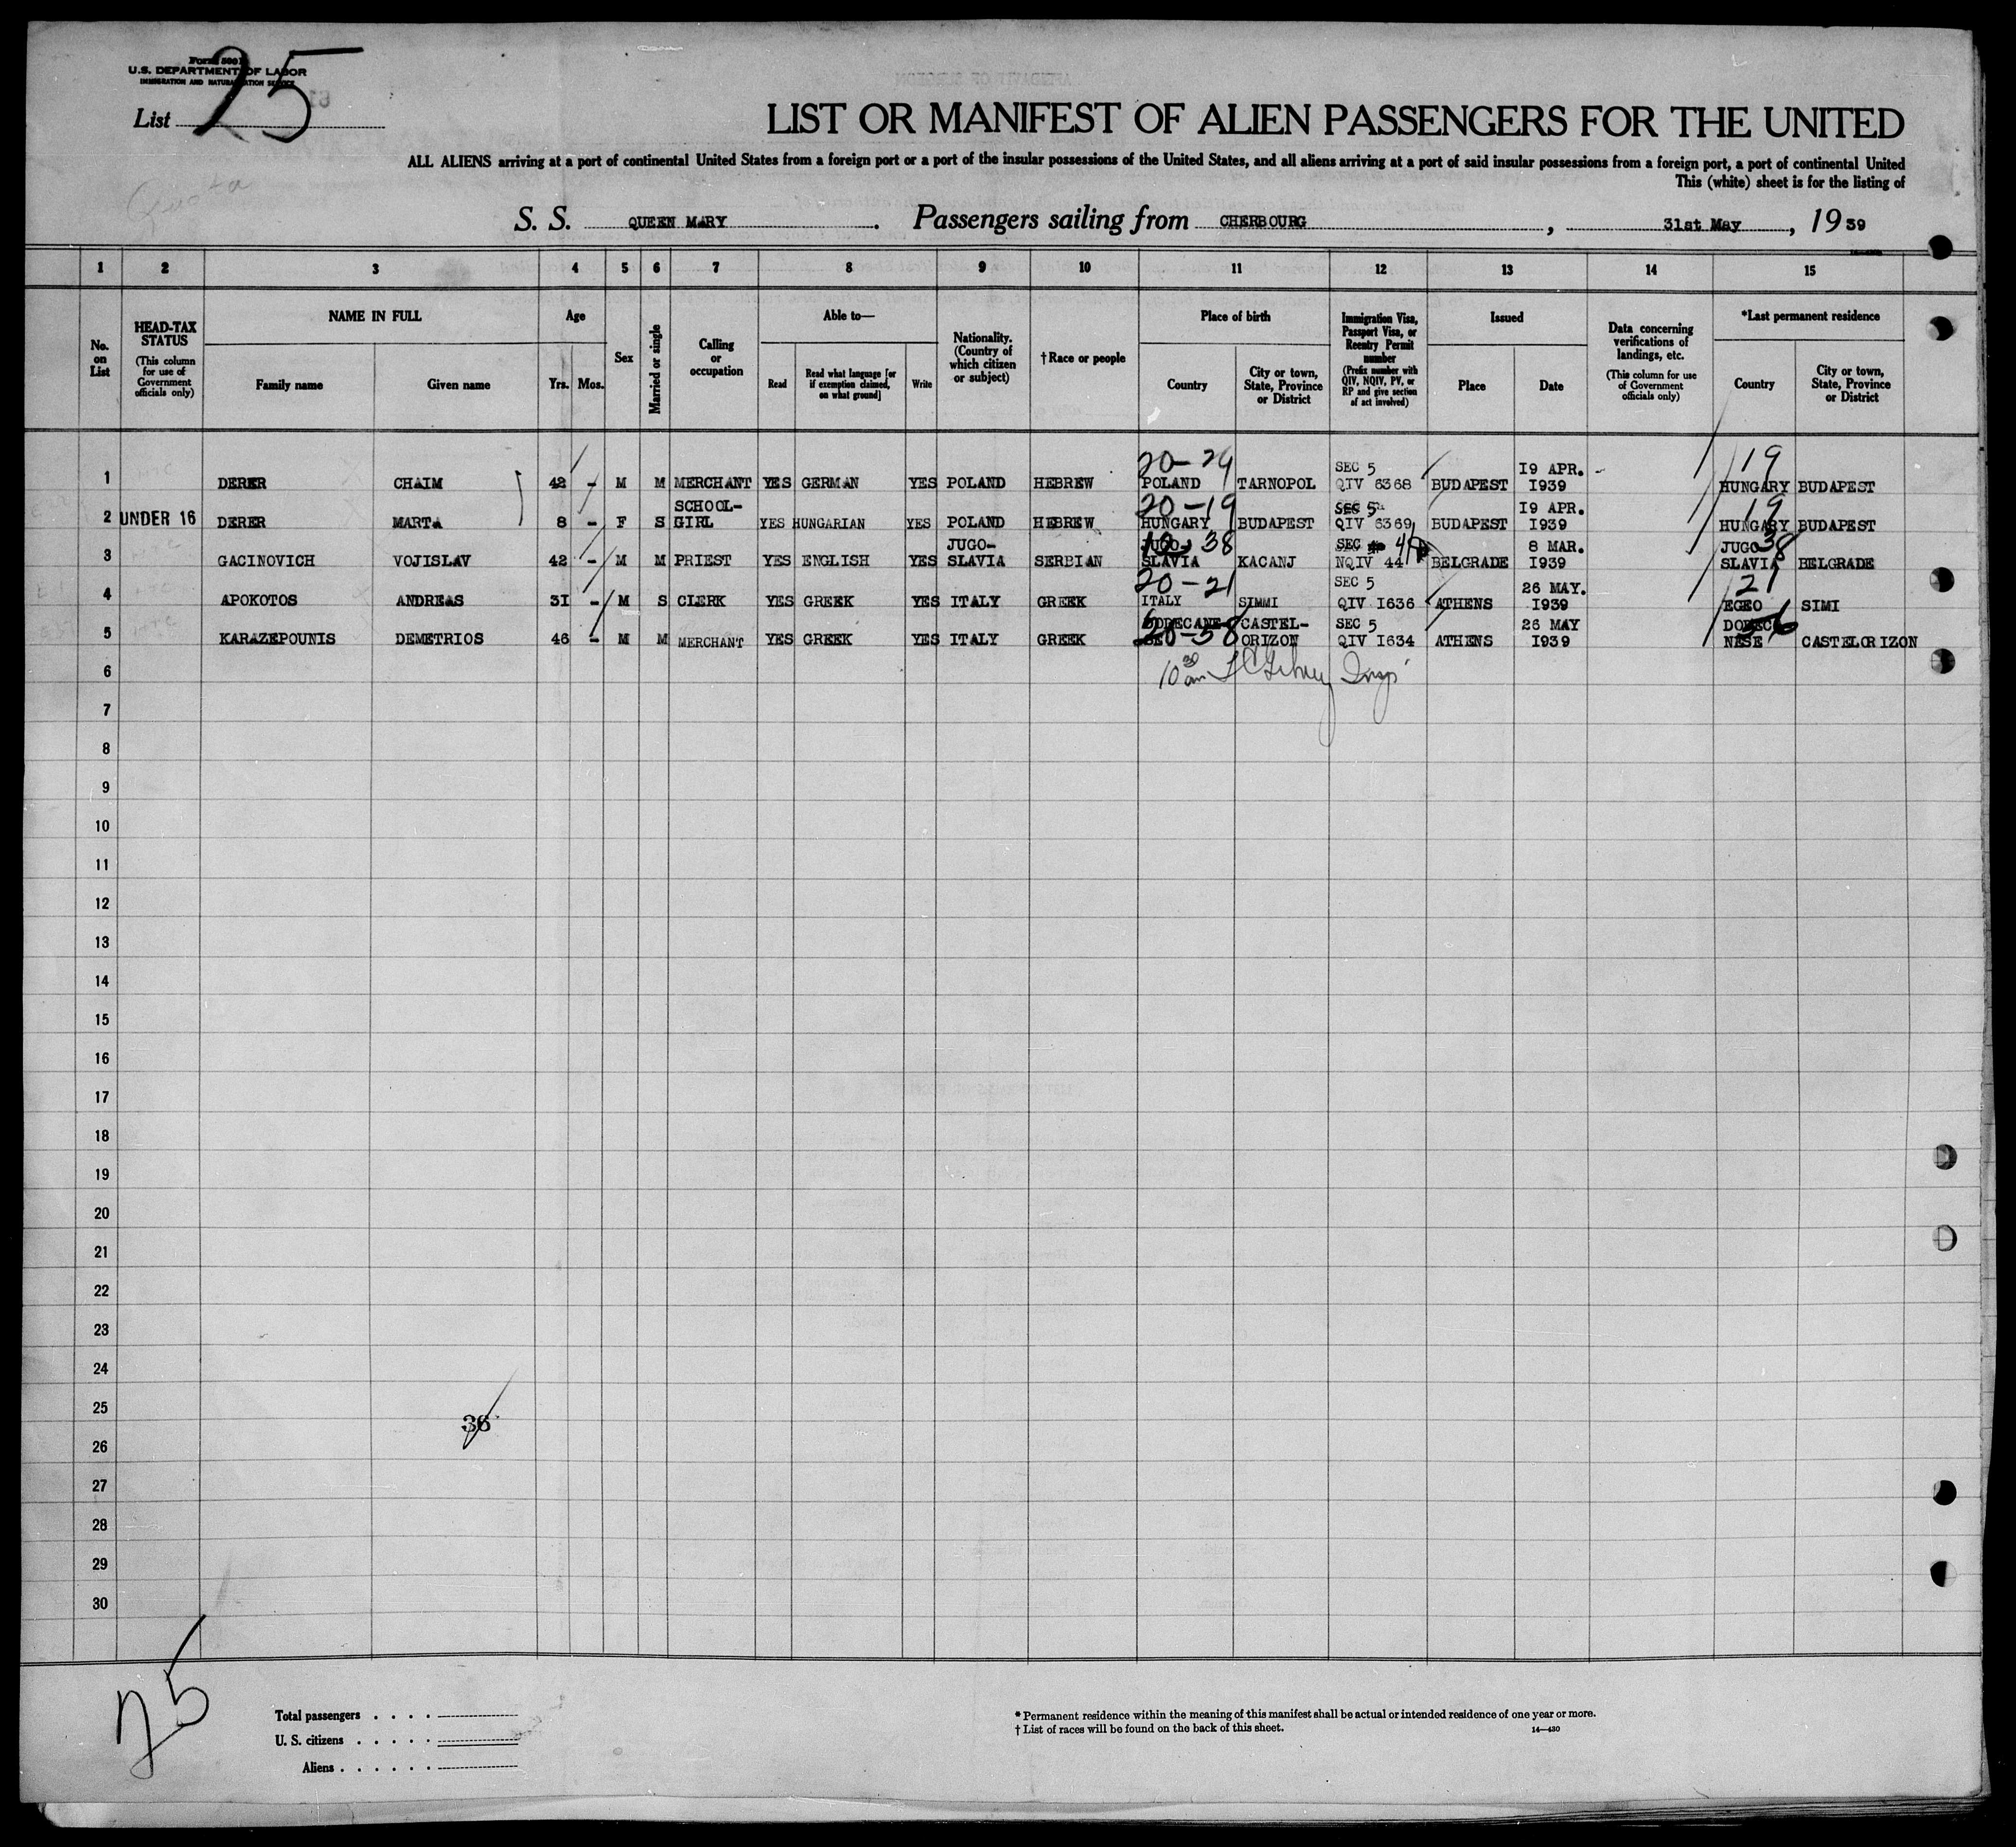 Form 500
U.S. DEPARTMENT OF LABOR
IMMIGRATION AND NATURALIZATION SERVICE
List 25
LIST OR MANIFEST OF ALIEN PASSENGERS FOR THE UNITED
ALL ALIENS arriving at a port of continental United States from a foreign port or a port of the insular possessions of the United States, and all aliens arriving at a port of said insular possessions from a foreign port, a port of continental United
This (white) sheet is for the listing of
S. S. QUEEN MARY. Passengers sailing from CHERBOURG, 31st May, 1939
1 2 3 4 5 6 7 8 9 10 11 12 13 14 15
No. on List
HEAD-TAX STATUS
(This column for use of Government officials only)
NAME IN FULL
Family name
Given name
Age
Yrs. Mos.
Sex
Married or single
Calling or occupation
Able to—
Read
Read what language [or if exemption claimed, on what ground]
Write
Nationality. (Country of which citizen or subject)
†Race or people
Place of birth
Country
City or town, State, Province or District
Immigration Visa, Passport Visa, or Reentry Permit number
(Prefix number with QIV, NQIV, PV, or RP and give section of act involved)
Issued
Place
Date
Data concerning verifications of landings, etc.
(This column for use of Government officials only)
*Last permanent residence
Country
City or town, State, Province or District
20-24 SEC 5 19 APR. 19
1 DERER CHAIM 42 - M M MERCHANT YES GERMAN YES POLAND HEBREW POLAND TARNOPOL QIV 6368 BUDAPEST I939 HUNGARY BUDAPEST
SCHOOL- 20-19 SEC 5 I9 APR. 19
2 UNDER 16 DERER MARTA 8 - F S GIRL YES HUNGARIAN YES POLAND HEBREW HUNGARY BUDAPEST QIV 6369 BUDAPEST I939 HUNGARY BUDAPEST
JUGO- JUGO- 38 SEC 4 8 MAR. JUGO 38
3 GACINOVICH VOJISLAV 42 - M M PRIEST YES ENGLISH YES SLAVIA SERBIAN SLAVIA KACANJ NQIV 44 BELGRADE I939 SLAVIA BELGRADE
20-21 SEC 5 26 MAY. 21
4 APOKOTOS ANDREAS 3I - M S CLERK YES GREEK YES ITALY GREEK ITALY SIMMI QIV I636 ATHENS I939 EGEO SIMI
DODECANE- CASTEL- SEC 5 26 MAY DODEC 56
5 KARAZEPOUNIS DEMETRIOS 46 - M M MERCHANT YES GREEK YES ITALY GREEK 20-58 ORIZON QIV I634 ATHENS I939 NESE CASTELORIZON
6 10 30 am Insp
7
8
9
10
11
12
13
14
15
16
17
18
19
20
21
22
23
24
25
36
26
27
28
29
30
25
Total passengers . . . .
U. S. citizens . . . . .
Aliens . . . . . .
* Permanent residence within the meaning of this manifest shall be actual or intended residence of one year or more.
† List of races will be found on the back of this sheet.
14—430